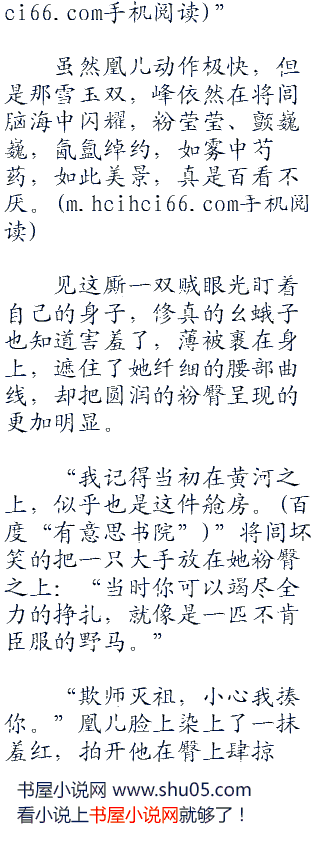 ci66.com手机阅读)”
虽然凰儿动作极快，但
是那雪玉双，峰依然在将闾
脑海中闪耀，粉莹莹、颤巍
巍，氤氲绰约，如雾中芍
药，如此美景，真是百看不
厌。(m.hcihci66.com手机阅
读)
见这厮一双贼眼光盯着
自己的身子，修真的幺蛾子
也知道害羞了，薄被裹在身
上，遮住了她纤细的腰部曲
线，却把圆润的粉臀呈现的
更加明显。
“我记得当初在黄河之
上，似乎也是这件舱房。(百
度“有意思书院”)”将闾坏
笑的把一只大手放在她粉臀
之上：“当时你可以竭尽全
力的挣扎，就像是一匹不肯
臣服的野马。”
“欺师灭祖，小心我揍
你。”凰儿脸上染上了一抹
羞红，拍开他在臀上肆掠
书屋小说网 www.shu05.com
看小说上书屋小说网就够了！